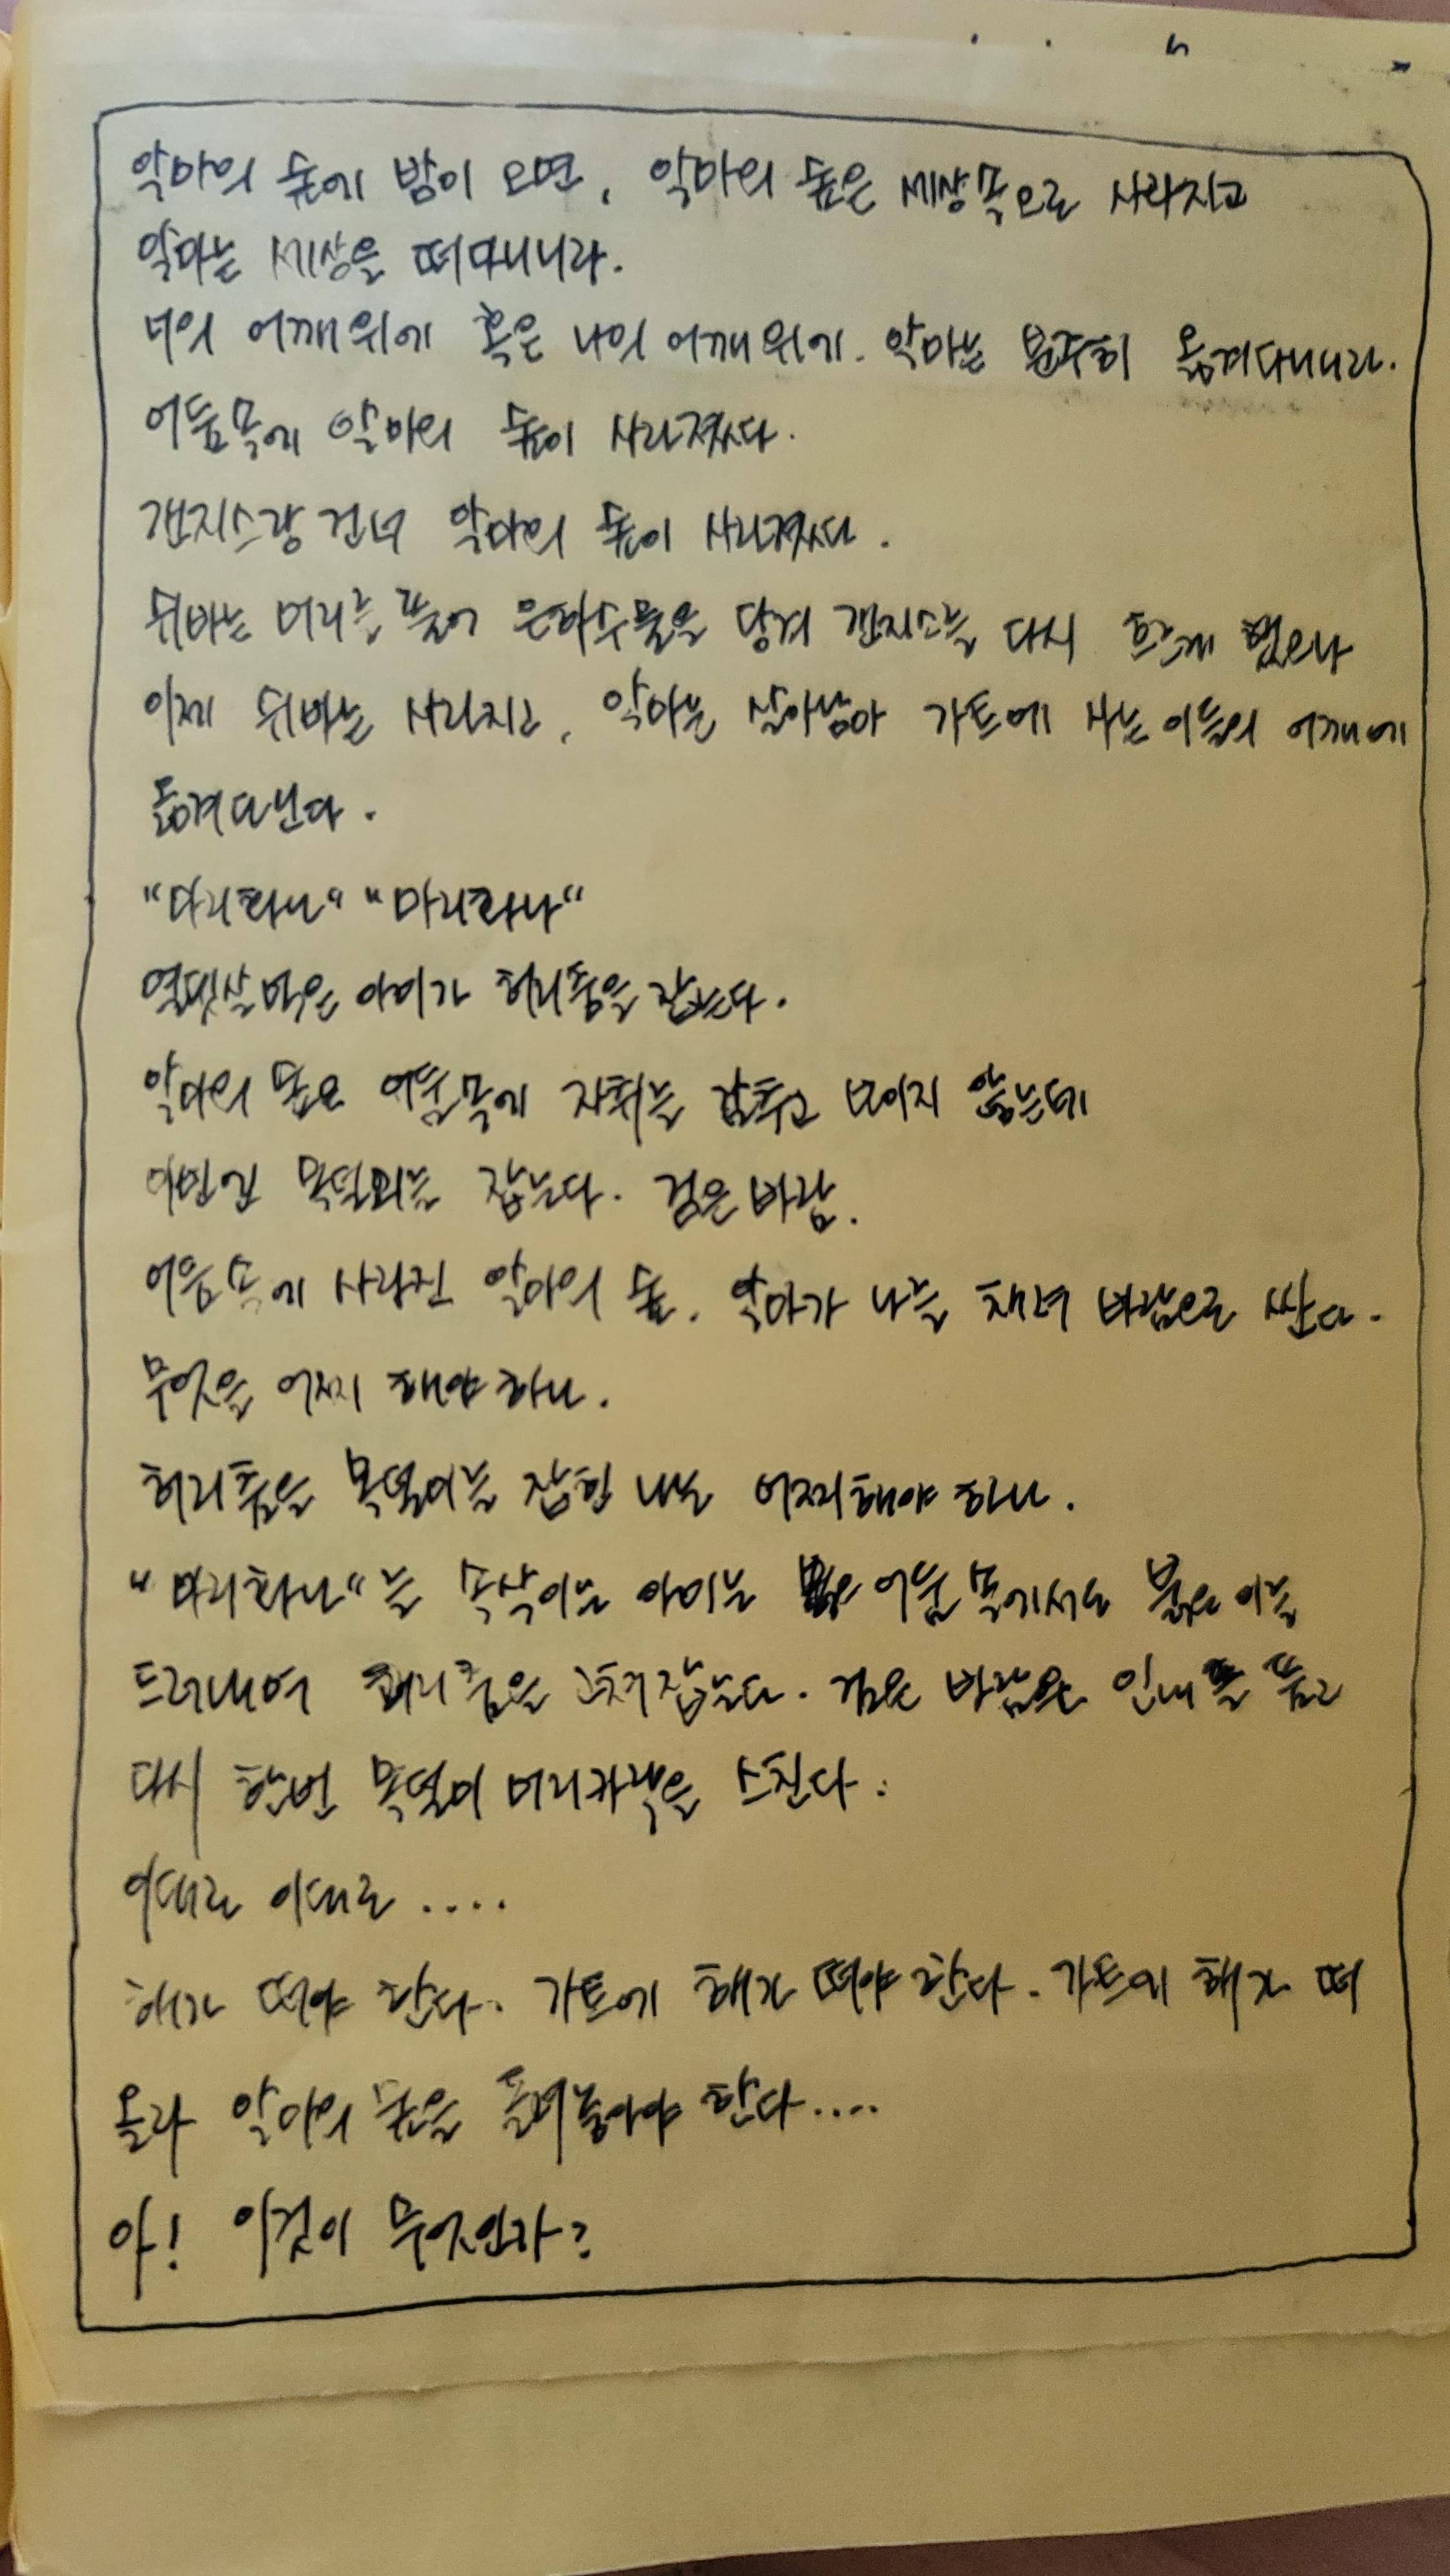 악마의 숲에 밤이 오면, 악마의 숲은 세상속으로 사라지고
악마는 세상을 떠다니니라.
너의 어깨위에 혹은 나의 어깨위에. 악마는 분주히 옮겨다니니라.
어둠속에 악마의 숲이 사라졌다.
갠지스강 건너 악마의 숲이 사라졌다.
쉬바는 머리를 풀어 은하수물을 당겨 갠지스를 다시 흐르게 했으나
이제 쉬바는 사라지고, 악마는 살아남아 가트에 사는 이들의 어깨에
옮겨다닌다.
"마리화나" "마리화나"
열댓살먹은 아이가 허리춤을 잡는다.
악마의 숲은 어둠속에 자취를 감추고 보이지 않는데
이번엔 목덜미를 잡는다. 검은 바람.
어둠속에 사라진 악마의 숲. 악마가 나를 채녀 바람으로 싼다.
무엇을 어찌 해야 하나.
허리춤을 목덜미를 잡힌 나는 어찌해야 하나.
"마리화나"를 속삭이는 아이는 어둠 속에서도 붉은 이를
드러내며 허리춤을 고쳐잡는다. 검은 바람은 인내를 품고
다시 한번 목덜미 머리카락을 스친다.
이대로 이대로 ....
해가 떠야 한다. 가트에 해가 떠야 한다. 가트에 해가 떠
올라 악마의 숲을 돌려놓아야 한다....
아! 이것이 무엇인가?